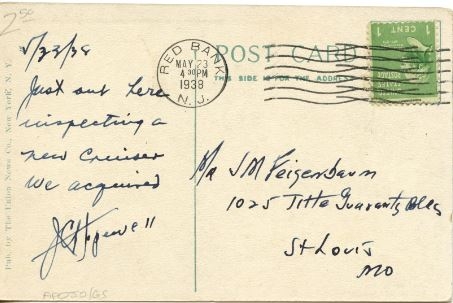 2.50
5/23/38
Just out here
inspecting a
new Cruiser
we acquired
RED BANK
MAY 23
4 30 PM
1938
N.J.
POST CARD
THIS SIDE IS FOR THE ADDRESS
1 CENT 1
J M Feigenbaum
1025 Title Guaranty Bldg
St Louis
MO
Pub. by The Union News Co., New York, N. Y.